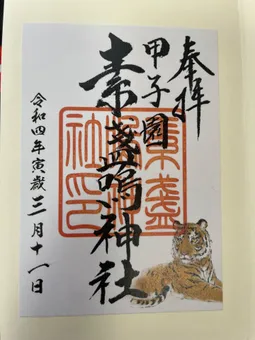 奉拝
甲子園
素盞嗚神社
令和四年寅歳三月十一日